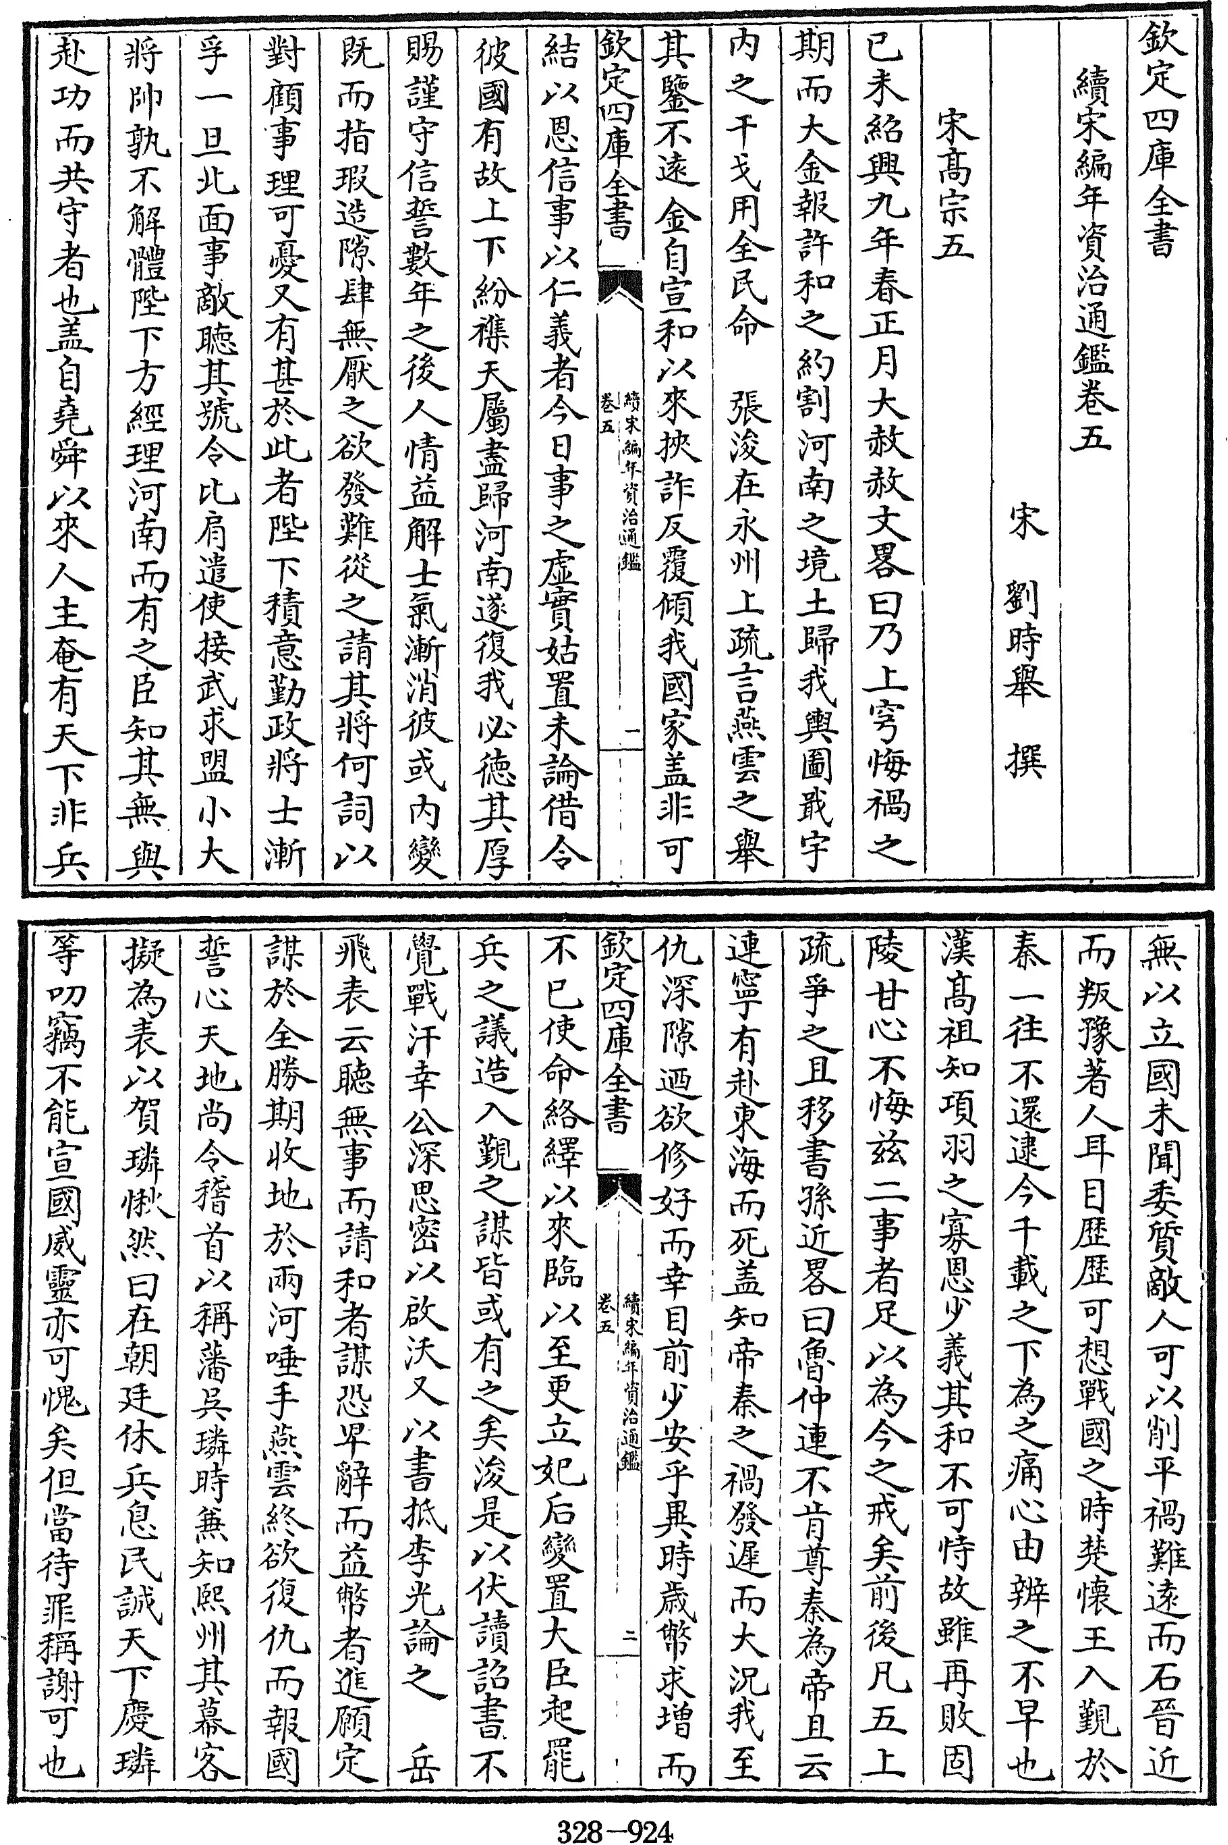 欽定四庫全書
續宋編年資治通鑑卷五
宋 劉時舉 撰
宋髙宗五
己未紹興九年春正月大赦赦文畧曰乃上穹悔禍之
期而大金報許和之約割河南之境土歸我輿圖戢宇
内之干戈用全民命 張浚在永州上疏言燕雲之舉
其鑒不逺金自宣和以來挾詐反覆傾我國家盖非可
欽定四庫全書
續宋編年資治通鑑
卷五
一
結以恩信事以仁義者今日事之虛實姑置未論借令
彼國有故上下紛襍天屬盡歸河南遂復我必徳其厚
賜謹守信誓數年之後人情益解士氣漸消彼或内變
既而指瑕造隙肆無厭之欲發難從之請其將何詞以
對顧事理可憂又有甚於此者陛下積意勤政將士漸
孚一旦北面事敵聽其號令比肩遣使接武求盟小大
將帥孰不解體陛下方經理河南而有之臣知其無與
赴功而共守者也盖自堯舜以來人主奄有天下非兵
無以立國未聞委質敵人可以削平禍難逺而石晉近
而叛豫著人耳目歴歴可想戰國之時楚懐王入覲於
秦一往不還逮今千載之下為之痛心由辨之不早也
漢髙祖知項羽之寡恩少義其和不可恃故雖再敗固
陵甘心不悔兹二事者足以為今之戒矣前後凡五上
疏爭之且移書孫近畧曰魯仲連不肯尊秦為帝且云
連寧有赴東海而死盖知帝秦之禍發遲而大況我至
仇深隙迺欲修好而幸目前少安乎異時歳幣求增而
欽定四庫全書
續宋編年資治通鑑
卷五
二
不已使命絡繹以來臨以至更立妃后變置大臣起罷
兵之議造入覲之謀皆或有之矣浚是以伏讀詔書不
覺戰汗幸公深思密以啟沃又以書抵李光論之 岳
飛表云聽無事而請和者謀恐卑辭而益幣者進願定
謀於全勝期收地於兩河唾手燕雲終欲復仇而報國
誓心天地尚令稽首以稱藩呉璘時兼知熙州其幕客
擬為表以賀璘愀然曰在朝廷休兵息民誠天下慶璘
等叨竊不能宣國威靈亦可愧矣但當待罪稱謝可也
328—924